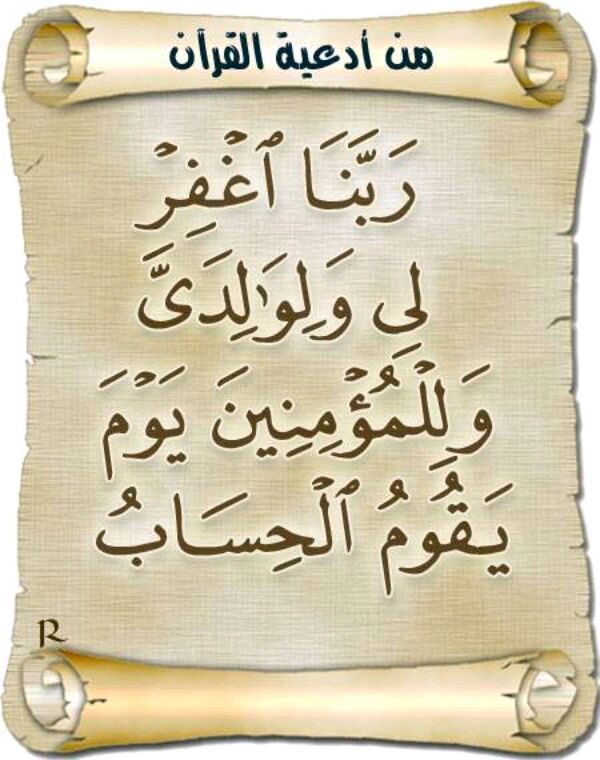 من أدعية القرآن
رَبَّنَا ٱغْفِرْ
لِى وَلِوَٰلِدَىَّ
وَلِلْمُؤْمِنِينَ يَوْمَ
يَقُومُ ٱلْحِسَابُ
R